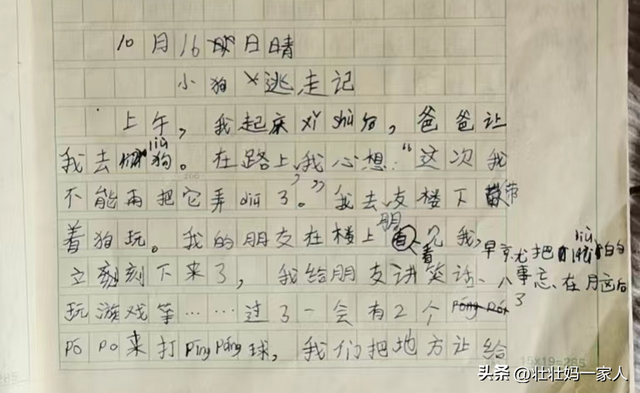 10月16日晴
小狗逃走记
上午，我起床xǐ shù后，爸爸让
我去liù狗。在路上我心想："这次我
不能再把它弄diū了。"我去朋友楼下带
着狗玩。我的朋友在楼上看见我，
立刻刻下来了，我给朋友讲笑话、
玩游戏等……过了一会有2个
pó po来打pīng pāng球，我们把地方让给
早就把liù狗的
事忘在
了
15×19=285
头条 @壮壮妈一家人